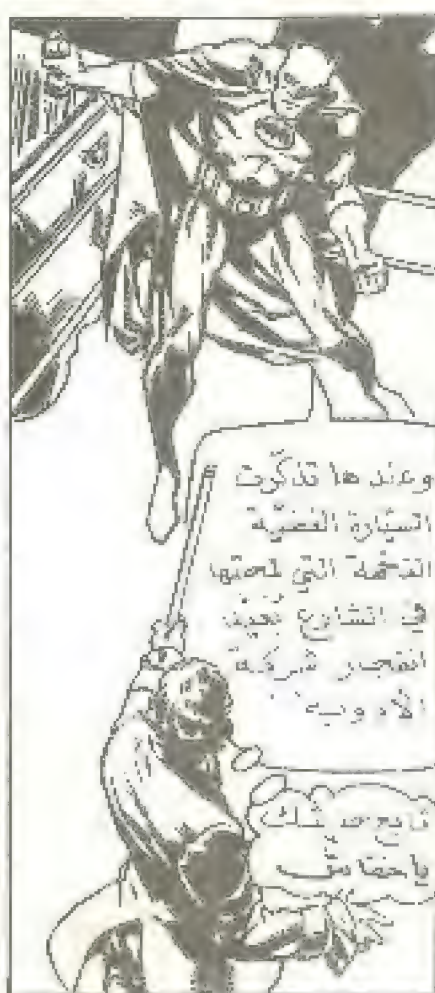 وعندها تذكّرت
السيّارة الفضيّة
الفخمة التي لمحتها
في الشارع بُعيد
انفجار شركة
الأدوية..
تابع حديثك
يا خفّاش